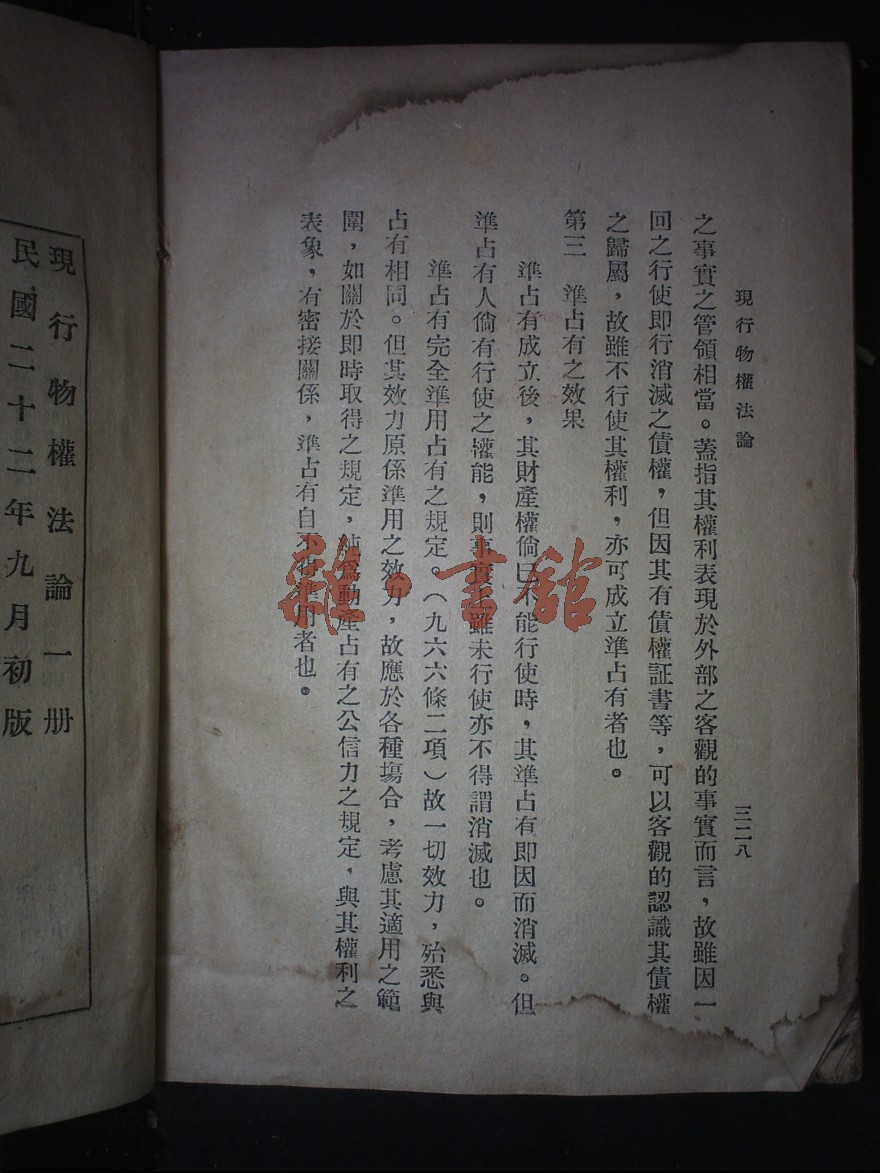 現行物權法論
三二八
之事實之管領相當。蓋指其權利表現於外部之客觀的事實而言，故雖因一
回之行使即行消滅之債權，但因其有債權証書等，可以客觀的認識其債權
之歸屬，故雖不行使其權利，亦可成立準占有者也。
第三　準占有之效果
準占有成立後，其財產權倘已不能行使時，其準占有即因而消滅。但
準占有人倘有行使之權能，則事實上雖未行使亦不得謂消滅也。
準占有完全準用占有之規定。（九六六條二項）故一切效力，殆悉與
占有相同。但其效力原係準用之效力，故應於各種塲合，考慮其適用之範
圍，如關於即時取得之規定，純爲動產占有之公信力之規定，與其權利之
表象，有密接關係，準占有自不得準用者也。
雜·書館
現行物權法論一册
民國二十二年九月初版